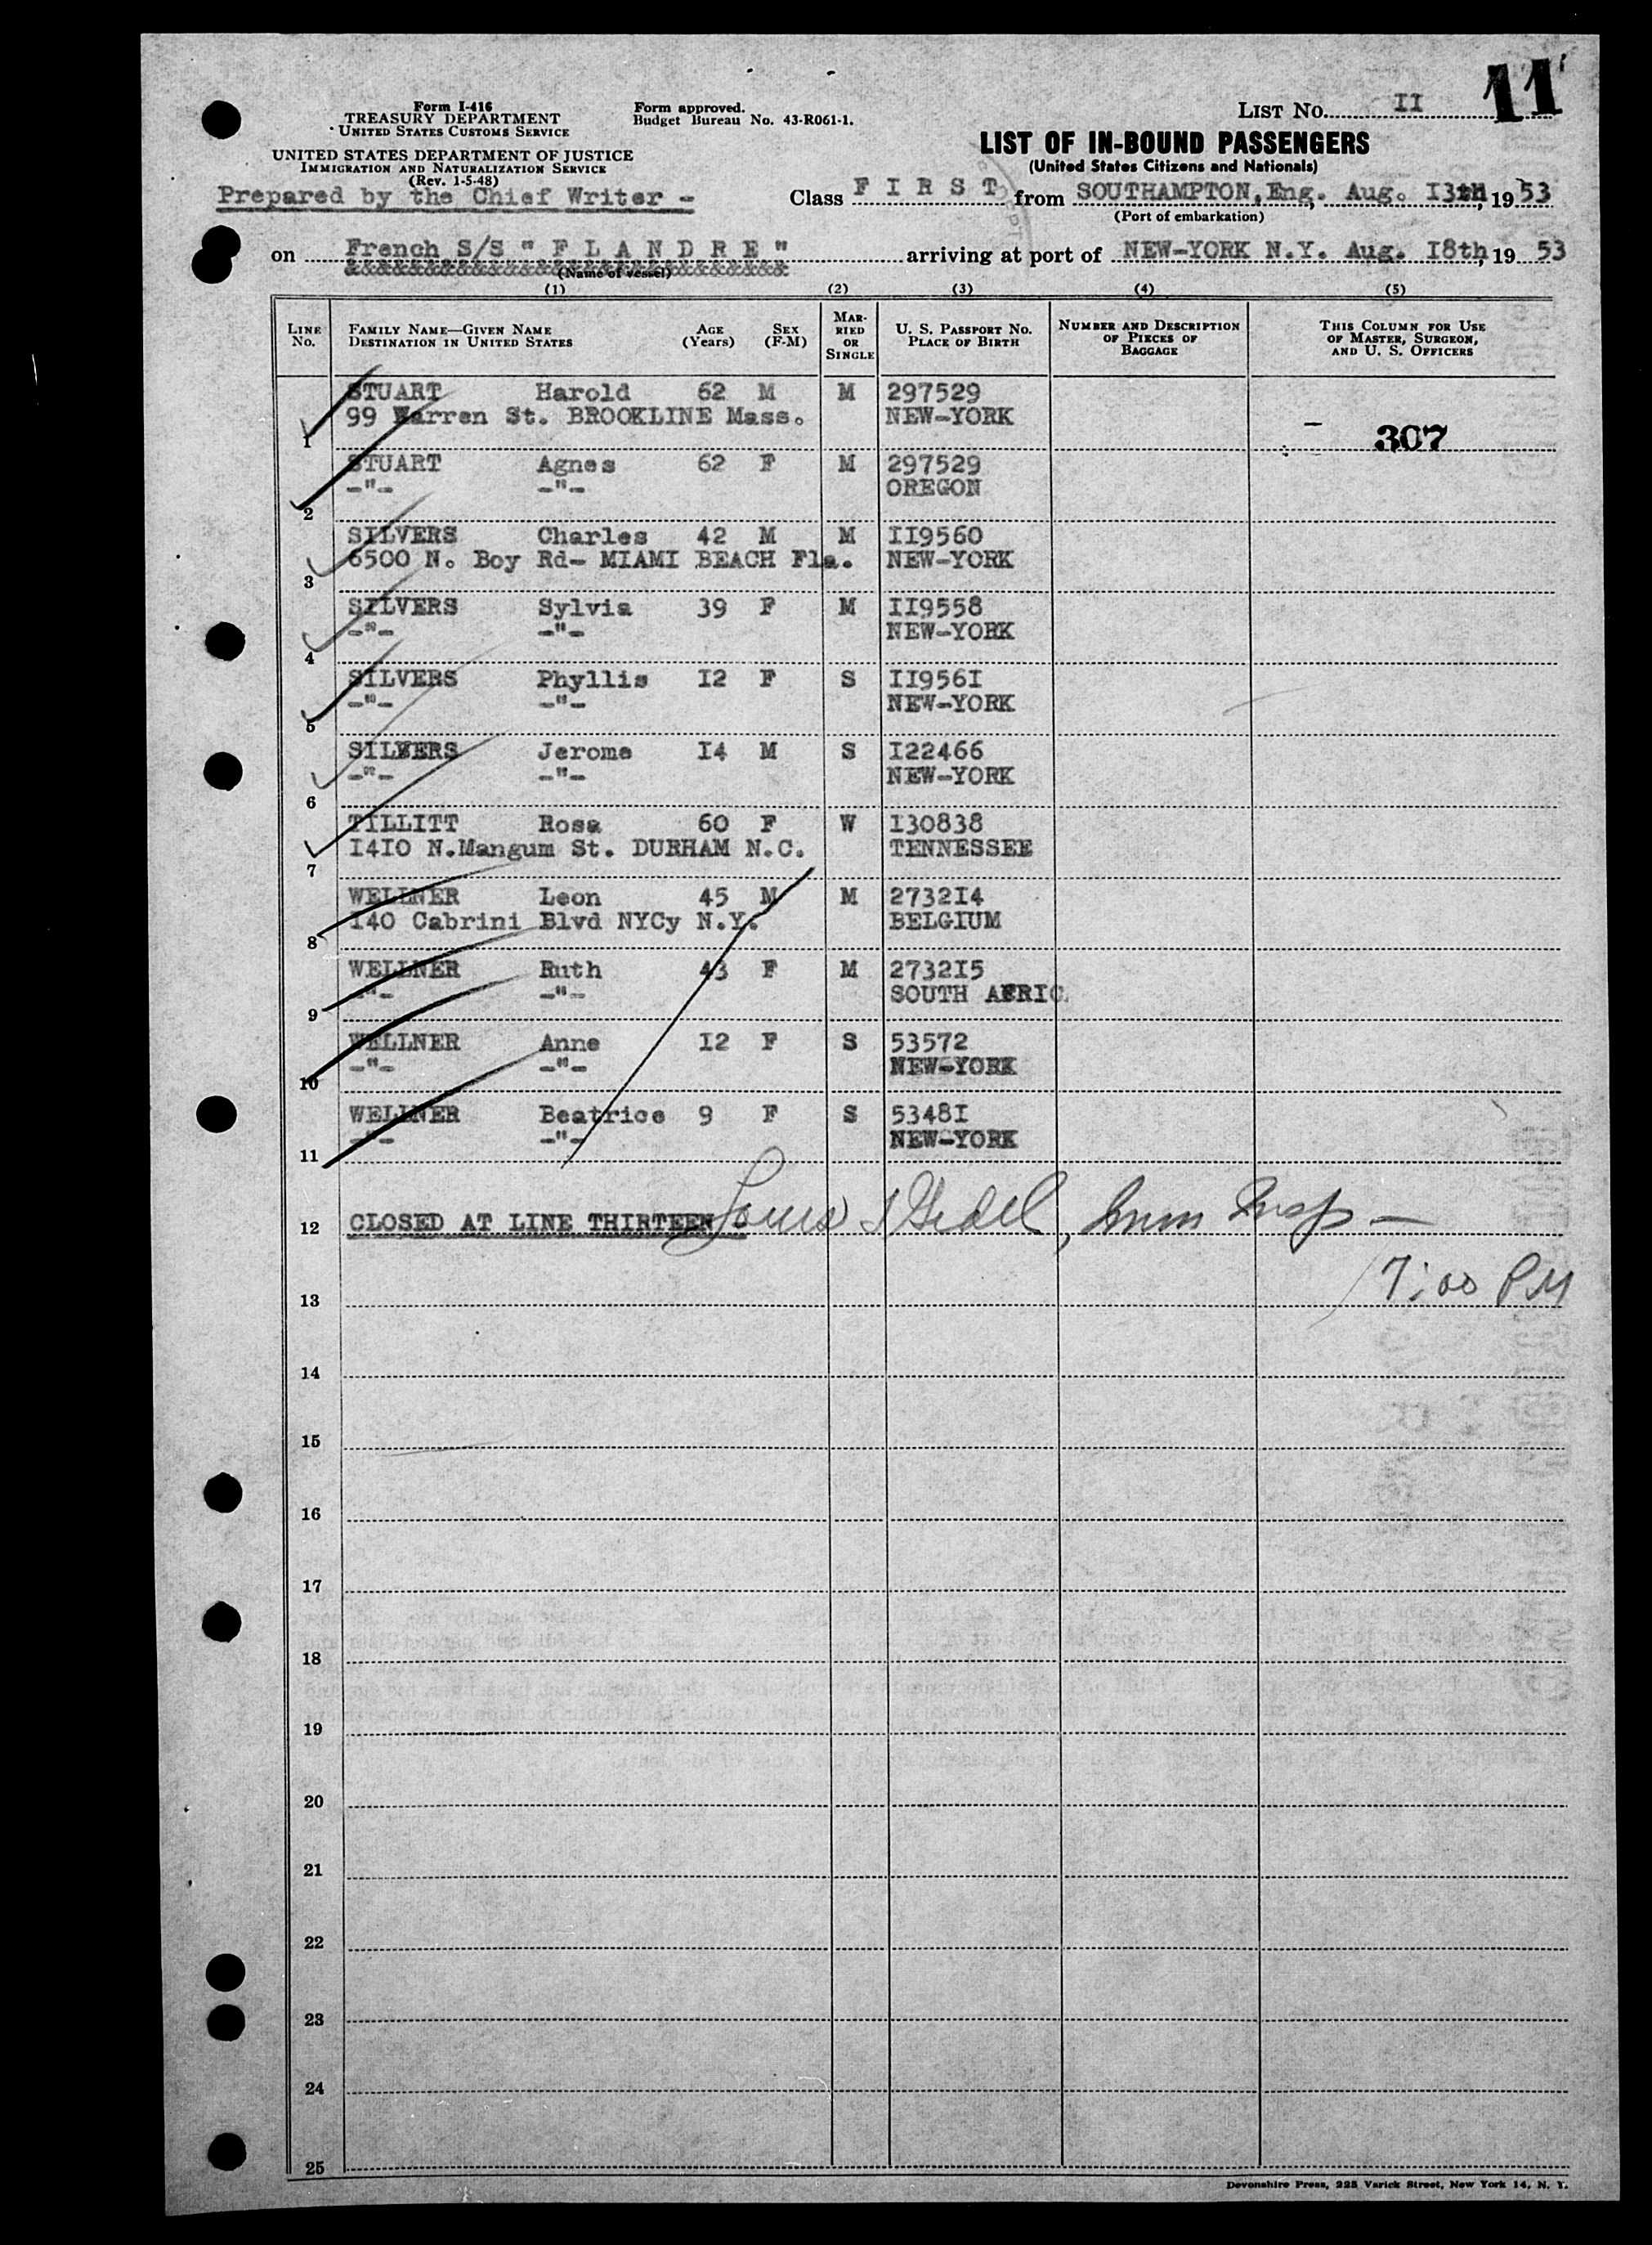 11
Form I-416
TREASURY DEPARTMENT
UNITED STATES CUSTOMS SERVICE
Form approved.
Budget Bureau No. 43-R061-1.
LIST NO. II
UNITED STATES DEPARTMENT OF JUSTICE
IMMIGRATION AND NATURALIZATION SERVICE
(Rev. 1-5-48)
LIST OF IN-BOUND PASSENGERS
(United States Citizens and Nationals)
Prepared by the Chief Writer -
Class F I R S T from SOUTHAMPTON, Eng. Aug. I3th, 1953
(Port of embarkation)
on French S/S " F L A N D R E " arriving at port of NEW-YORK N.Y. Aug. I8th, 1953
(Name of vessel)
(1) (2) (3) (4) (5)
LINE NO. FAMILY NAME—GIVEN NAME DESTINATION IN UNITED STATES AGE (Years) SEX (F-M) MARRIED OR SINGLE U. S. PASSPORT NO. PLACE OF BIRTH NUMBER AND DESCRIPTION OF PIECES OF BAGGAGE THIS COLUMN FOR USE OF MASTER, SURGEON, AND U. S. OFFICERS
STUART Harold 62 M M 297529
99 Warren St. BROOKLINE Mass. NEW-YORK
1 307
STUART Agnes 62 F M 297529
-"- -"- OREGON
2
SILVERS Charles 42 M M II9560
6500 N. Boy Rd- MIAMI BEACH Fla. NEW-YORK
3
SILVERS Sylvia 39 F M II9558
-"- -"- NEW-YORK
4
SILVERS Phyllis I2 F S II956I
-"- -"- NEW-YORK
5
SILVERS Jerome I4 M S I22466
-"- -"- NEW-YORK
6
TILLITT Rosa 60 F W I30838
I4I0 N.Mangum St. DURHAM N.C. TENNESSEE
7
WELLNER Leon 45 M M 2732I4
I40 Cabrini Blvd NYCy N.Y. BELGIUM
8
WELLNER Ruth 43 F M 2732I5
-"- -"- SOUTH AFRIC.
9
WELLNER Anne I2 F S 53572
-"- -"- NEW-YORK
10
WELLNER Beatrice 9 F S 5348I
-"- -"- NEW-YORK
11
12 CLOSED AT LINE THIRTEEN - Louis , Imm Insp —
7:00 PM
13
14
15
16
17
18
19
20
21
22
23
24
25
Devonshire Press, 225 Varick Street, New York 14, N. Y.